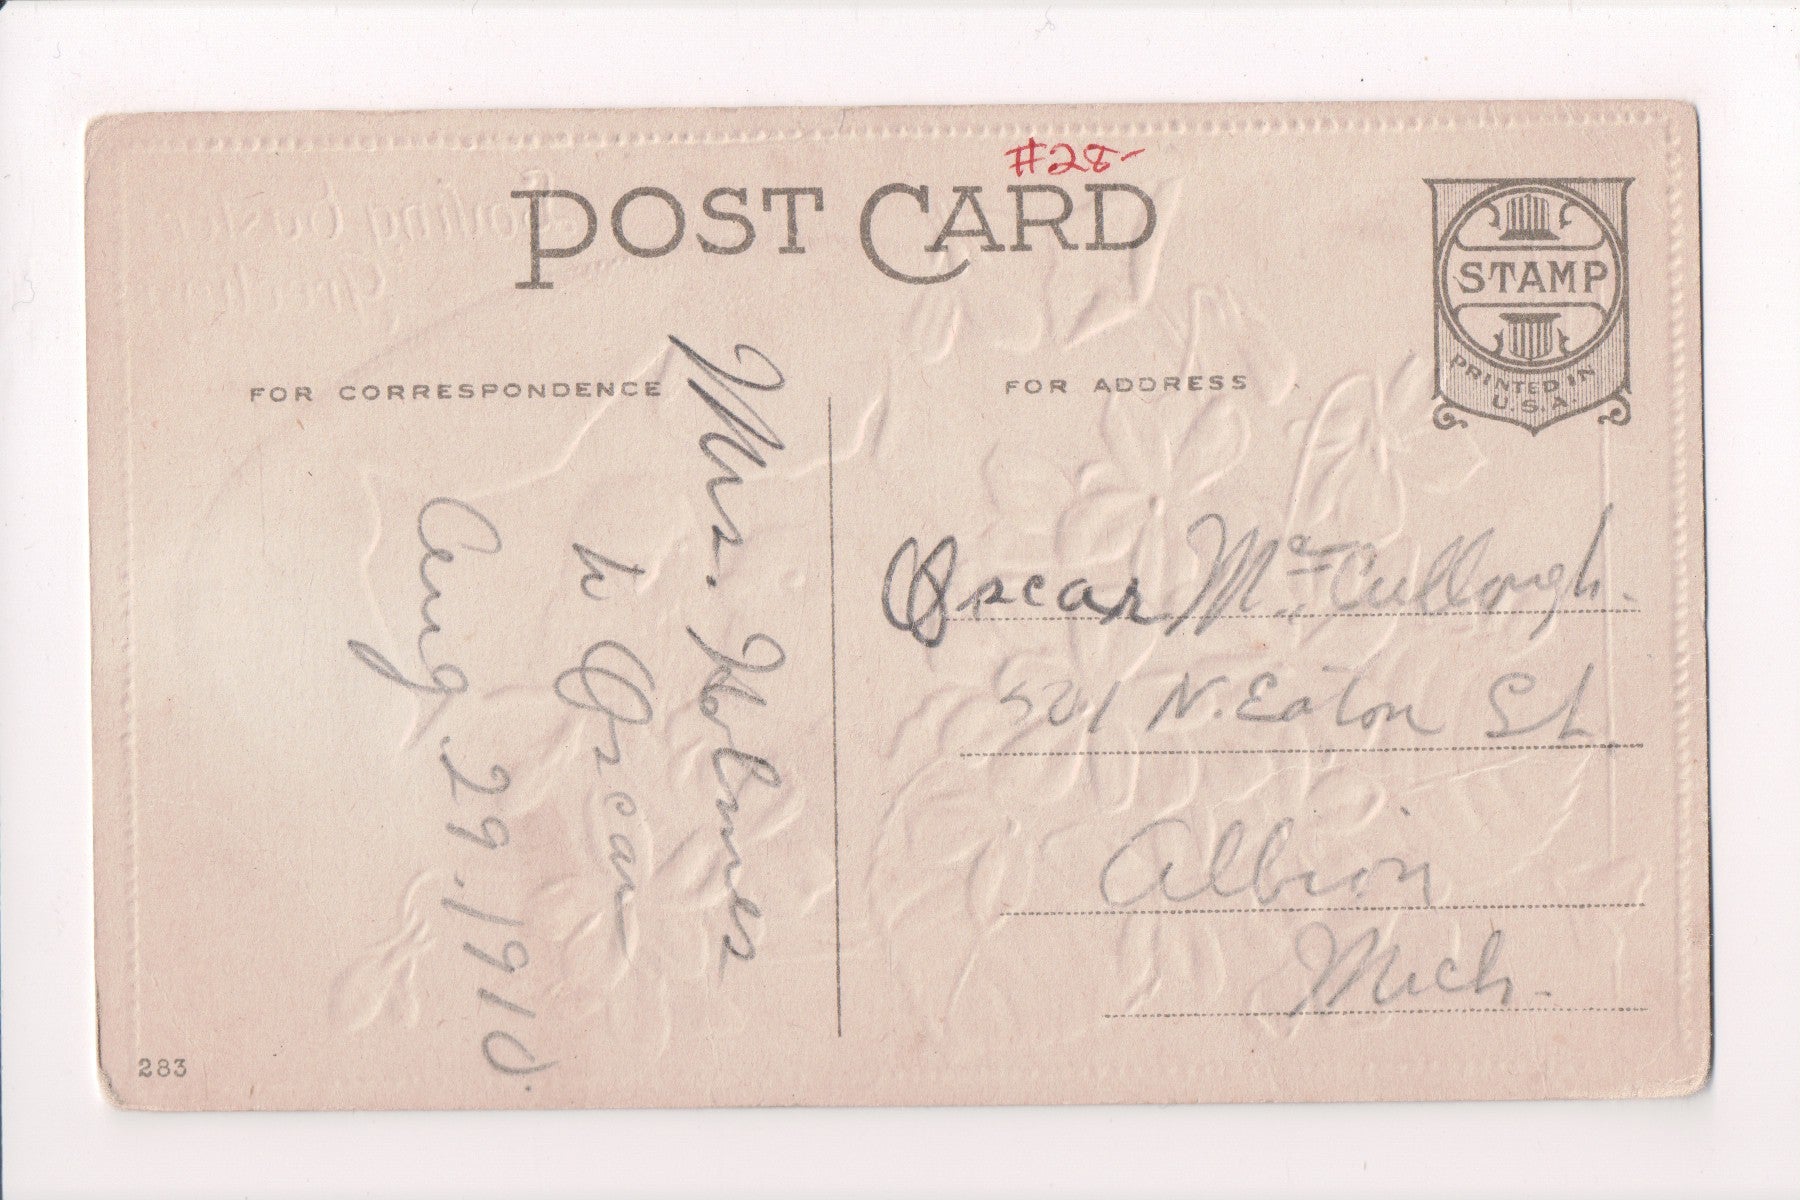 #28-
POST CARD
STAMP
PRINTED IN
U.S.A.
FOR CORRESPONDENCE
FOR ADDRESS
Mrs. Holmes
to Oscar
Aug. 29. 1910.
Oscar McCullough.
501 N. Eaton St.
Albion
Mich.
283